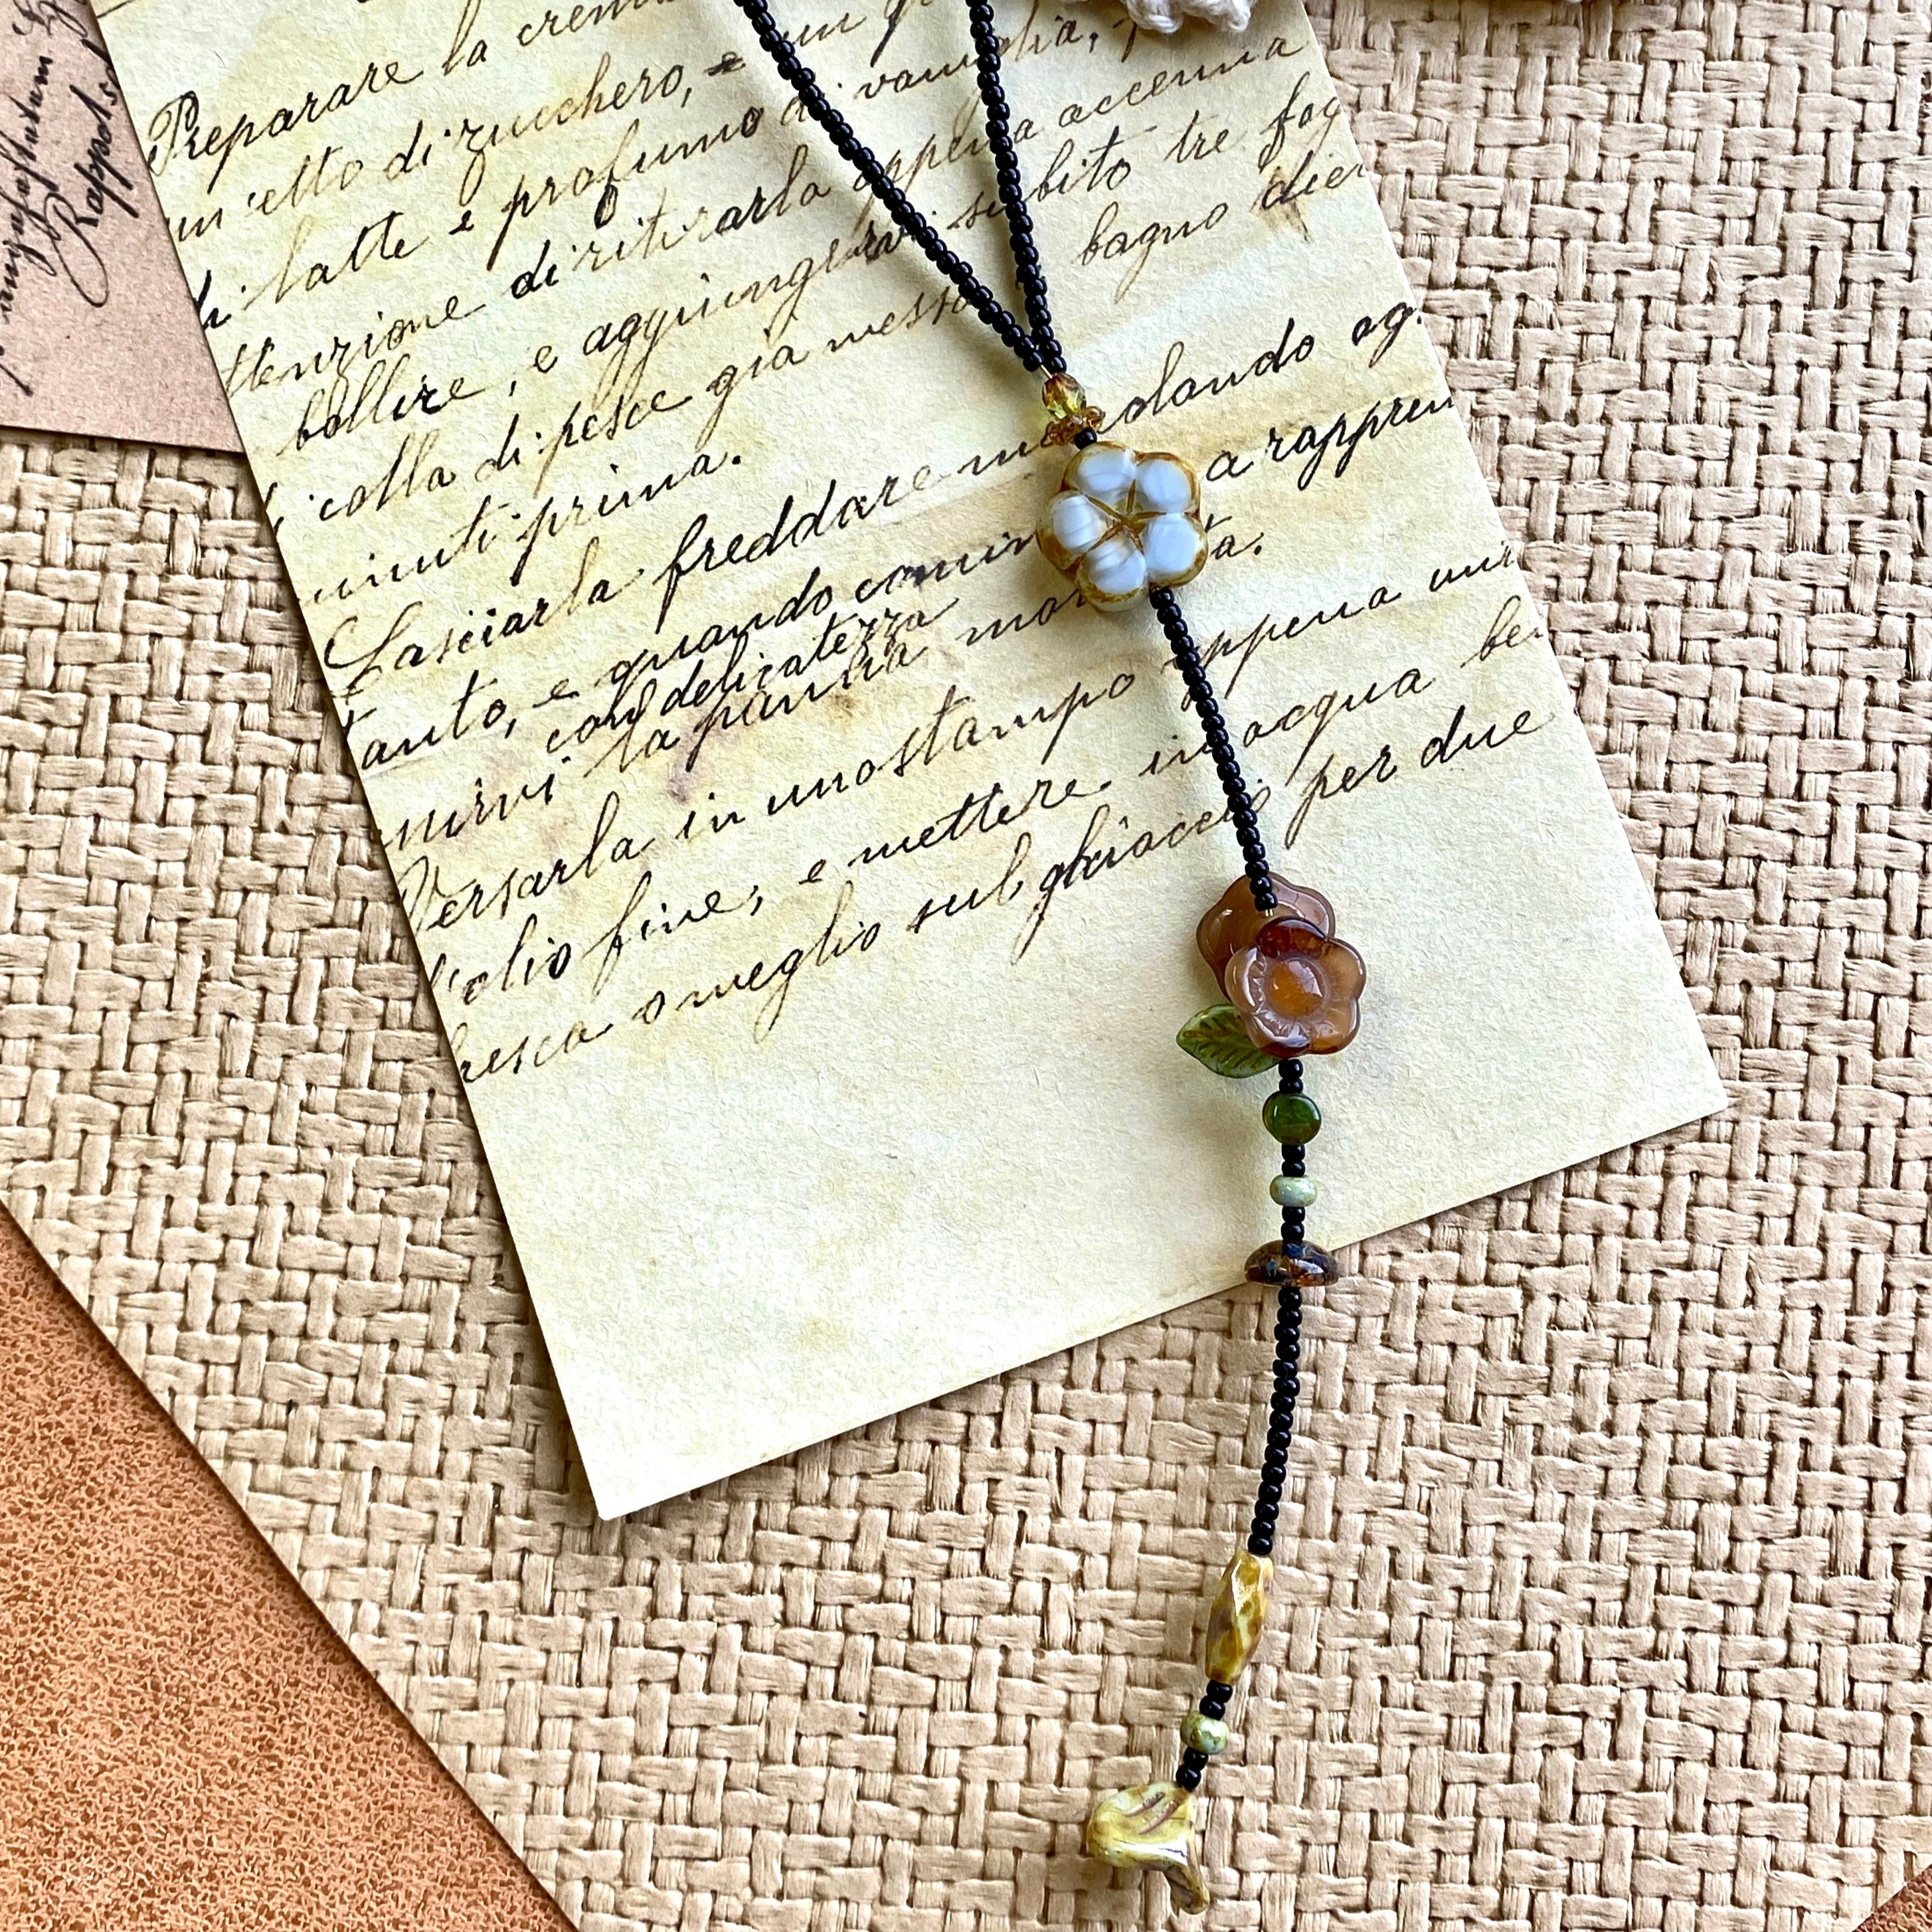 Preparare la crema
un etto di zucchero, e un
di latte e profumo di vaniglia,
ttenzione di ritirarla appena accenna
bollire, e aggiungervi subito tre fog
i colla di pesce già messa bagno diec
minuti prima.
Lasciarla freddare me olando og.
tanto, e quando comin a rappren
con delicatezza
nirvi la panna mon ta.
Versarla in uno stampo appena un
d'olio fine, e mettere in acqua be
fresca o meglio sul ghiaccio per due
Rappols